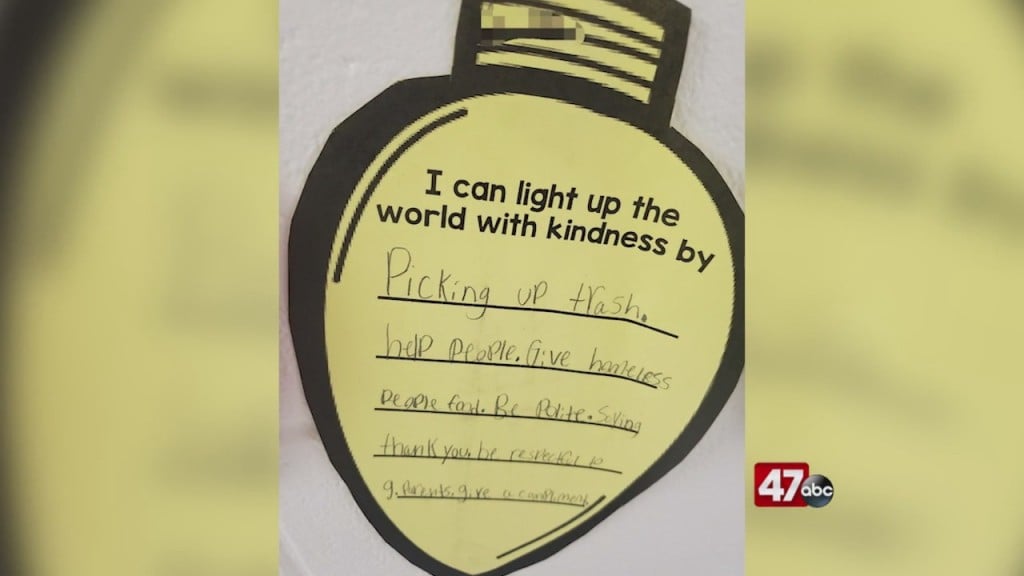 I can light up the
world with kindness by
Picking up trash.
help people. Give homeless
people food. Be Polite. Saying
thank you. be respectful to
g. Parents. give a compliment
47abc